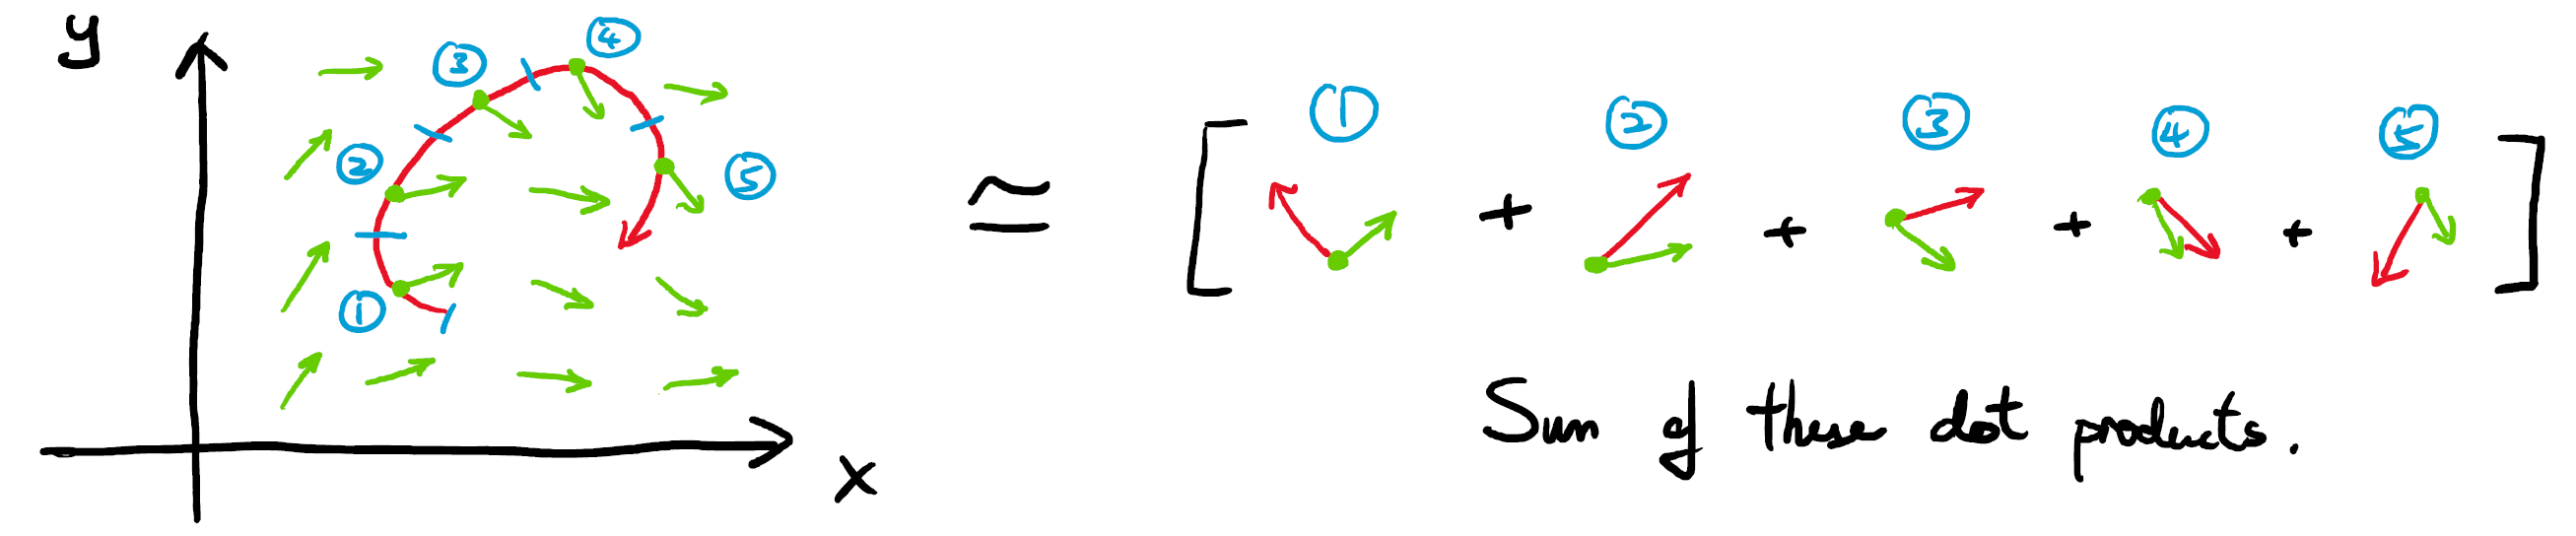 y
③ ④
② ⑤
①
x
≈ [ ① + ② + ③ + ④ + ⑤ ]
Sum of these dot products.